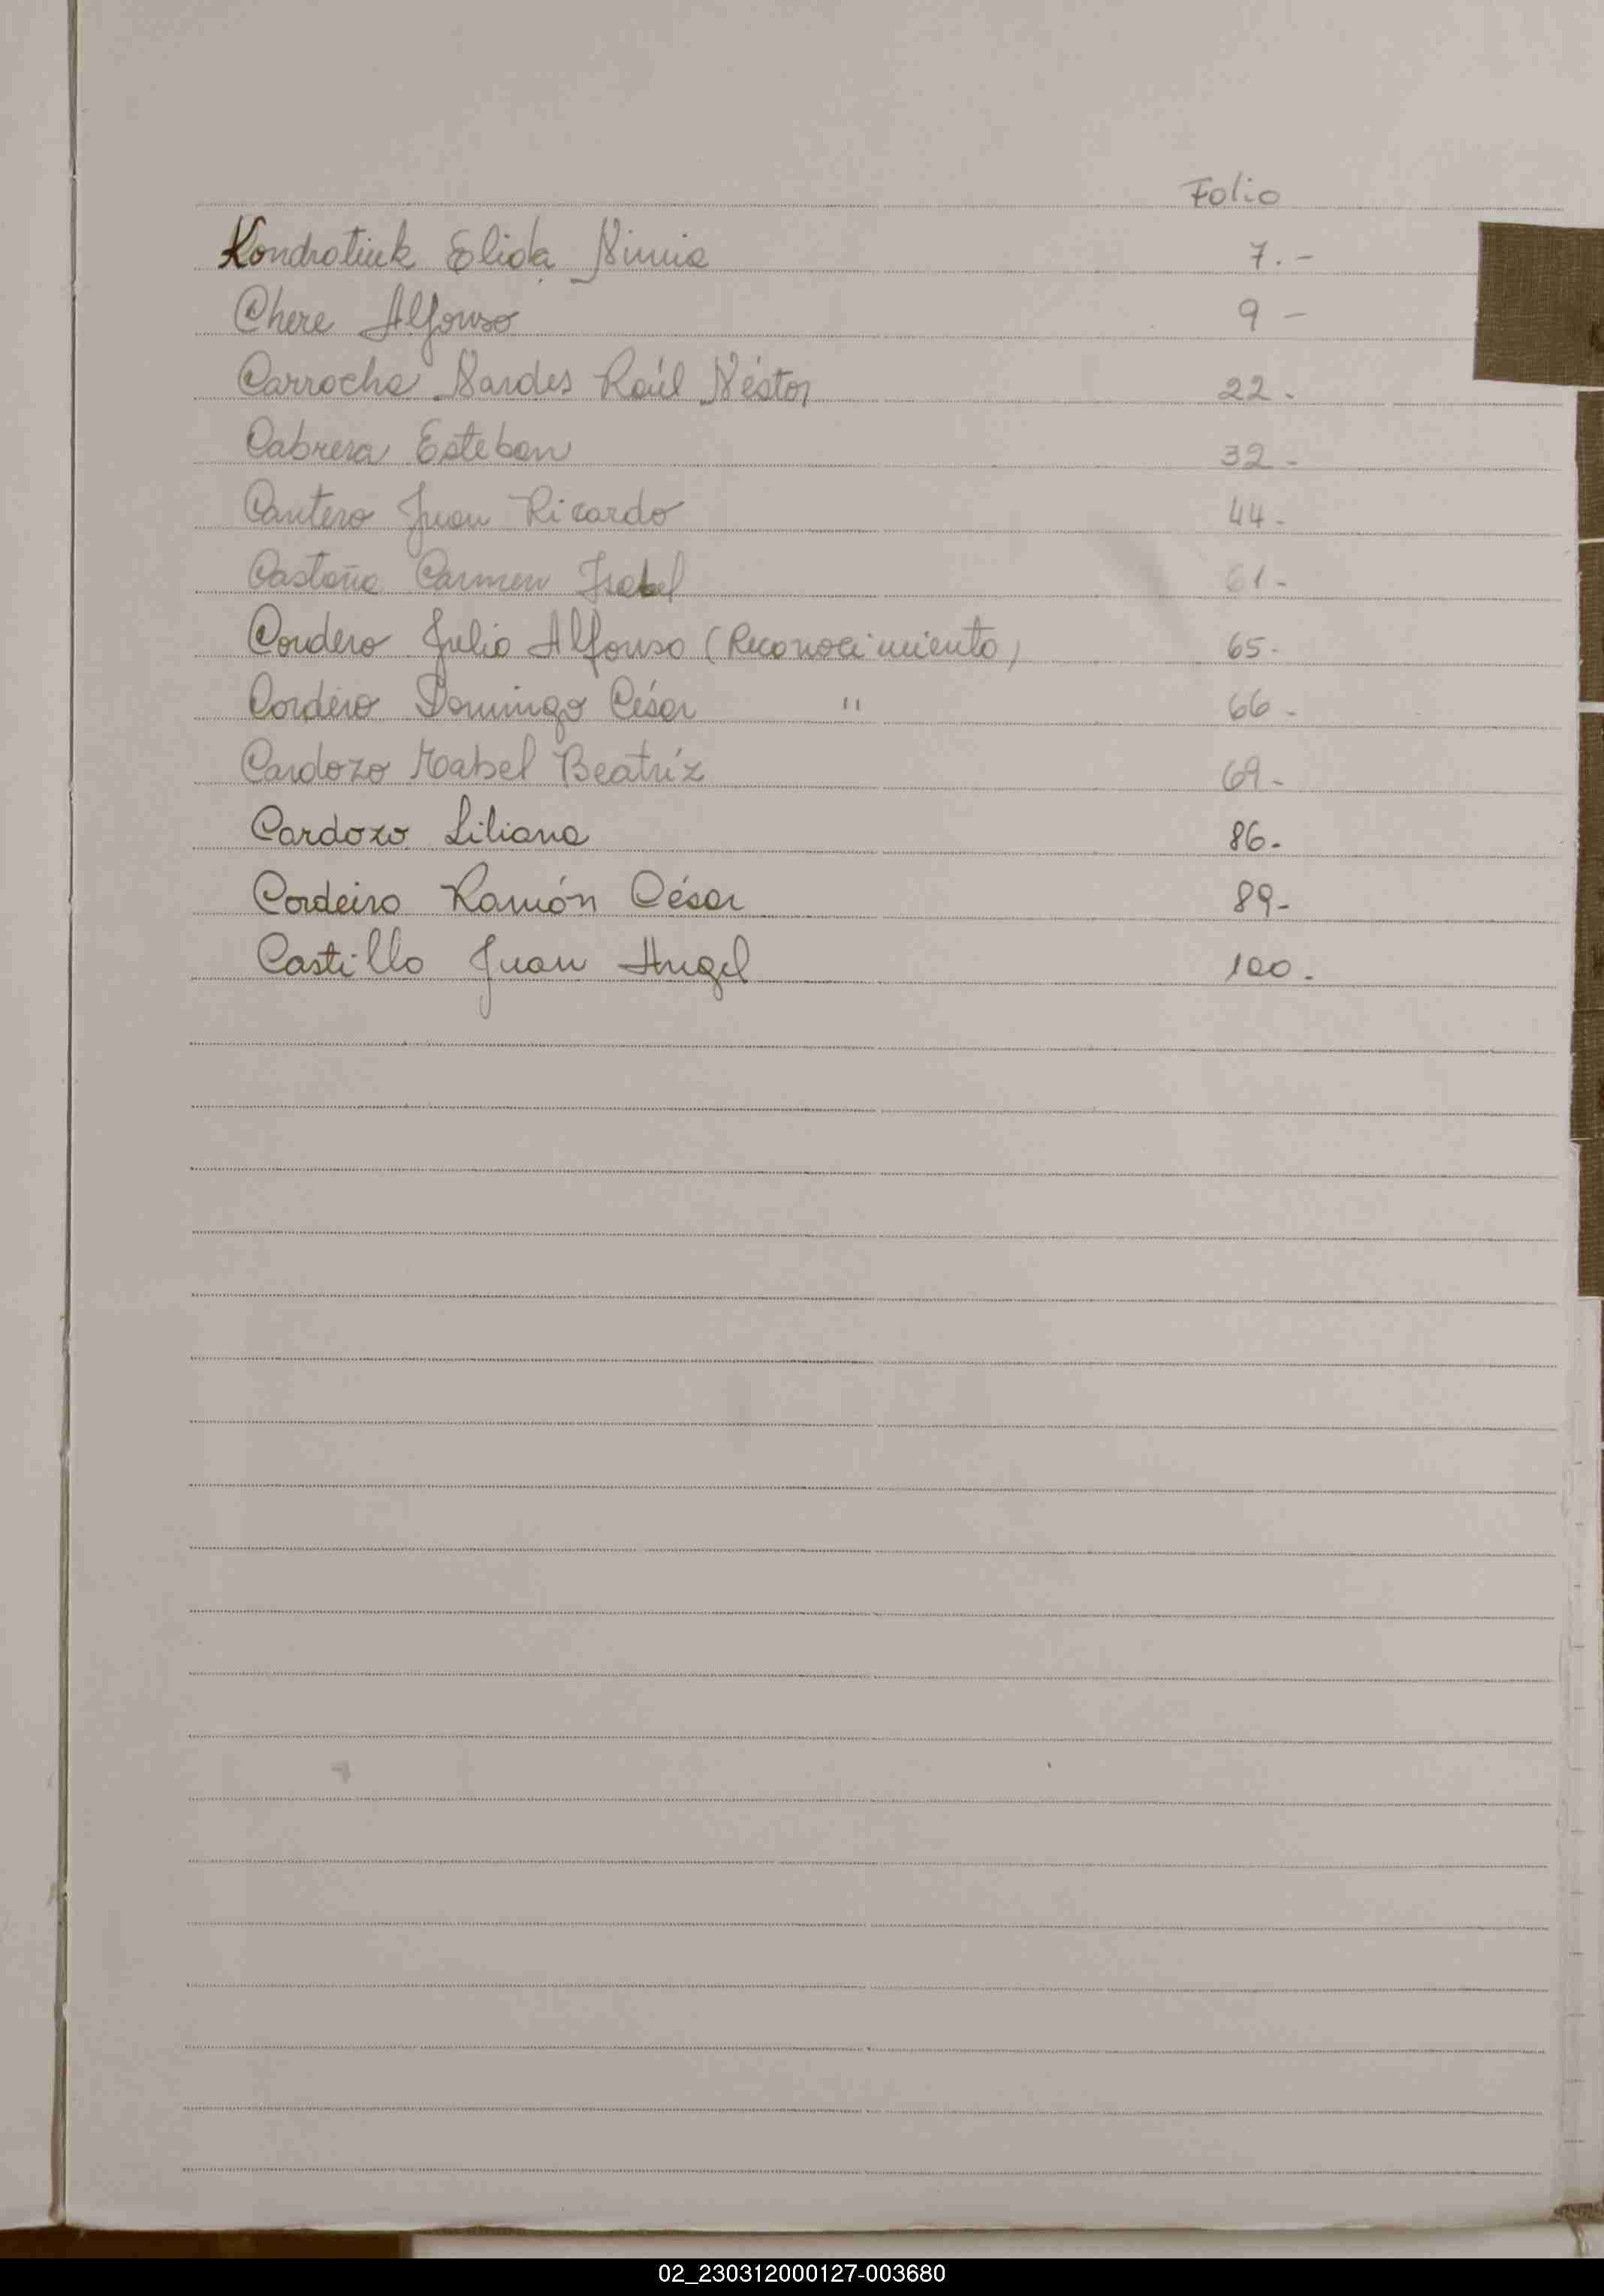 Folio
Kondratiuk Elida Nimia 7.-
Chere Alfonso 9 -
Carrocha Nardes Raúl Néstor 22.
Cabrera Esteban 32-
Cantero Juan Ricardo 44-
Castaño Carmen Isabel 61-
Cordero Julio Alfonso (Reconocimiento) 65-
Cordero Domingo César " 66-
Cardozo Mabel Beatríz 69-
Cardozo Liliana 86-
Cordeiro Ramón César 89-
Castillo Juan Angel 100.
02_230312000127-003680